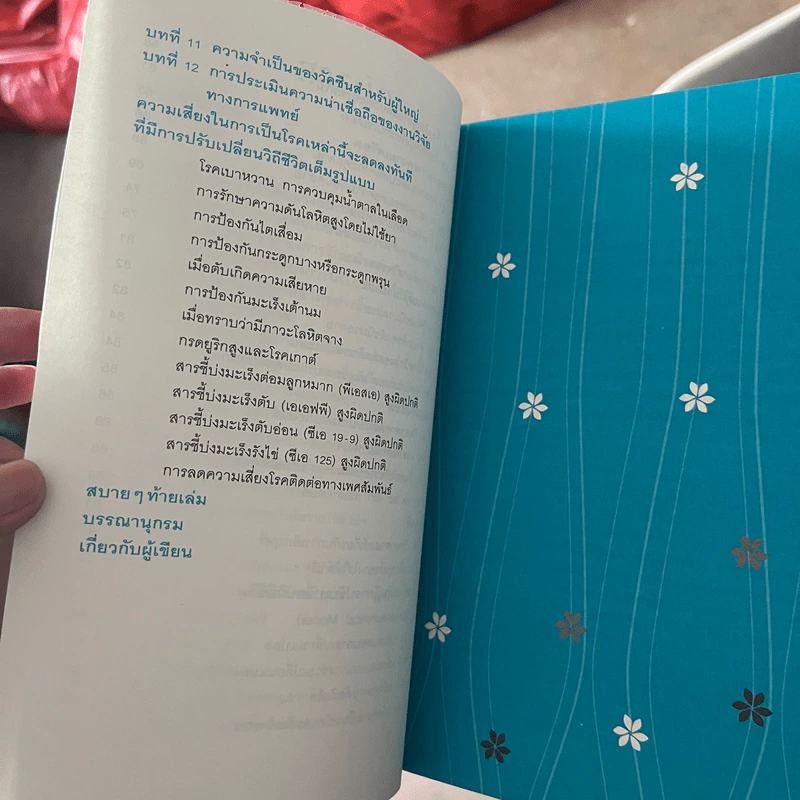 บทที่ 11 ความจำเป็นของวัคซีนสำหรับผู้ใหญ่
บทที่ 12 การประเมินความน่าเชื่อถือของงานวิจัย
ทางการแพทย์
ความเสี่ยงในการเป็นโรคเหล่านี้จะลดลงทันที
ที่มีการปรับเปลี่ยนวิถีชีวิตเต็มรูปแบบ
โรคเบาหวาน การควบคุมน้ำตาลในเลือด
การรักษาความดันโลหิตสูงโดยไม่ใช้ยา
การป้องกันไตเสื่อม
การป้องกันกระดูกบางหรือกระดูกพรุน
เมื่อตับเกิดความเสียหาย
การป้องกันมะเร็งเต้านม
เมื่อทราบว่ามีภาวะโลหิตจาง
กรดยูริกสูงและโรคเกาต์
สารชี้บ่งมะเร็งต่อมลูกหมาก (พีเอสเอ) สูงผิดปกติ
สารชี้บ่งมะเร็งตับ (เอเอฟพี) สูงผิดปกติ
สารชี้บ่งมะเร็งตับอ่อน (ซีเอ 19-9) สูงผิดปกติ
สารชี้บ่งมะเร็งรังไข่ (ซีเอ 125) สูงผิดปกติ
การลดความเสี่ยงโรคติดต่อทางเพศสัมพันธ์
สบายๆ ท้ายเล่ม
บรรณานุกรม
เกี่ยวกับผู้เขียน